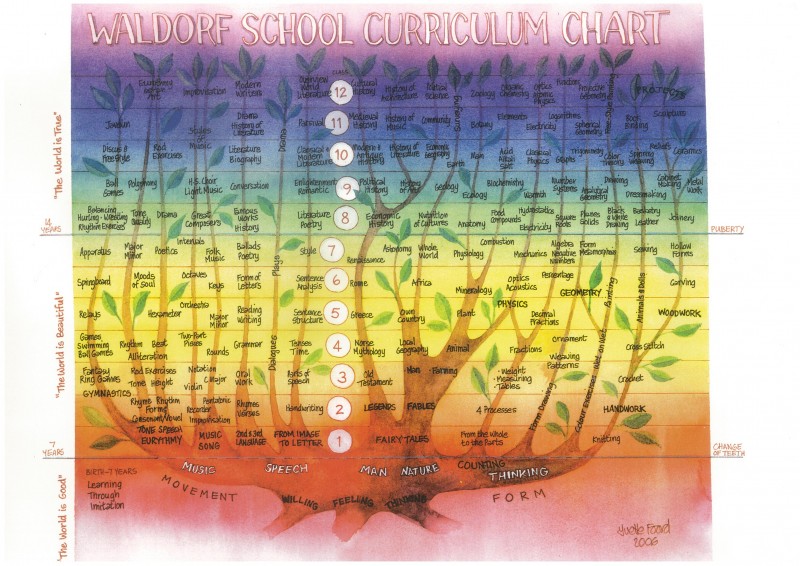 WALDORF SCHOOL CURRICULUM CHART
CLASS
Improvisation
Modern Writers
Overview World Literature
12
Cultural History
History of Architecture
Political Science
Surveying
Zoology
Organic Chemistry
Optics
Physics
Projective Geometry
PROJECTS
Drama
History of Literature
Drama
Parsival
11
Medieval History
History of Music
Community
Botany
Elements
Electricity
Logarithms
Spherical Geometry
Book Binding
Sculpture
Discus & Freestyle
Rod Exercises
Literature Biography
Classical & Modern Literature
10
Modern & Antique History
History of Literature
Economic Geography
Earth
Man
Acid Alkali Salt
Classical Physics
Graphs
Trigonometry
Color Theory
Spinning Weaving
Reliefs
Ceramics
Ball Games
Polyphony
H.S. Choir
Light Music
Conversation
Enlightenment Romantic
9
Political History
History of Art
Geology
Ecology
Biochemistry
Warmth
Number Systems
Analytical Geometry
Drawing
Dressmaking
Cabinet Making
Metal Work
Balancing
Rhythm Exercises
Tone Quality
Drama
Great Composers
Famous Works History
Literature Poetry
8
Economic History
Nutrition of Cultures
Anatomy
Food Compounds
Hydrostatics
Electricity
Square Roots
Planes Solids
Black & White Drawing
Basketry Leather
Joinery
14 YEARS
PUBERTY
Apparatus
Major Minor
Poetics
Intervals
Folk Music
Ballads Poetry
Plays
Style
7
Renaissance
Astronomy
Whole World
Physiology
Combustion
Mechanics
Algebra
Negative Numbers
Form Metamorphose
Sewing
Hollow Forms
Springboard
Moods of Soul
Octaves
Keys
Form of Letters
Sentence Analysis
6
Rome
Africa
Mineralogy
Optics Acoustics
PHYSICS
Percentage
GEOMETRY
Painting
Animals & Dolls
Carving
Relays
Hexameter
Orchestra
Major Minor
Reading Writing
Sentence Structure
5
Greece
Own Country
Plant
Decimal Fractions
WOODWORK
Games
Swimming
Ball Games
Rhythm
Beat
Alliteration
Two-Part Pieces
Rounds
Grammar
Dialogues
Tenses Time
4
Norse Mythology
Local Geography
Animal
Fractions
Ornament
Weaving Patterns
Wet-on-Wet
Cross Stitch
Fantasy
Ring Games
GYMNASTICS
Rod Exercises
Tone Height
Notation
C Major
Violin
Oral Work
Parts of Speech
3
Old Testament
Man
Farming
• Weight
• Measuring Tables
Crochet
Rhyme Rhythm
Forms
Consonant/Vowel
Pentatonic
Recorder
Improvisation
Rhymes Verses
Handwriting
2
LEGENDS
FABLES
4 Processes
Form Drawing
Colour Exercises
HANDWORK
TONE SPEECH
EURYTHMY
MUSIC SONG
2nd & 3rd LANGUAGE
FROM IMAGE TO LETTER
1
FAIRY TALES
From the Whole to the Parts
Knitting
7 YEARS
CHANGE OF TEETH
BIRTH-7 YEARS
Learning
Through
Imitation
MUSIC
SPEECH
MAN
NATURE
COUNTING
THINKING
MOVEMENT
WILLING
FEELING
THINKING
FORM
"The World is True"
"The World is Beautiful"
"The World is Good"
Yvette Foord
2006